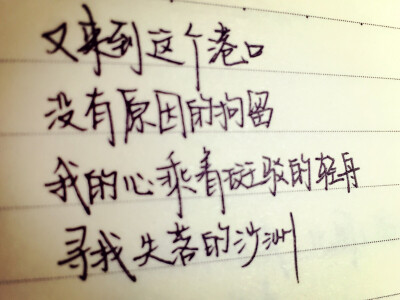 又来到这个港口
没有原因的拘留
我的心乘着斑驳的轻舟
寻找失落的沙洲